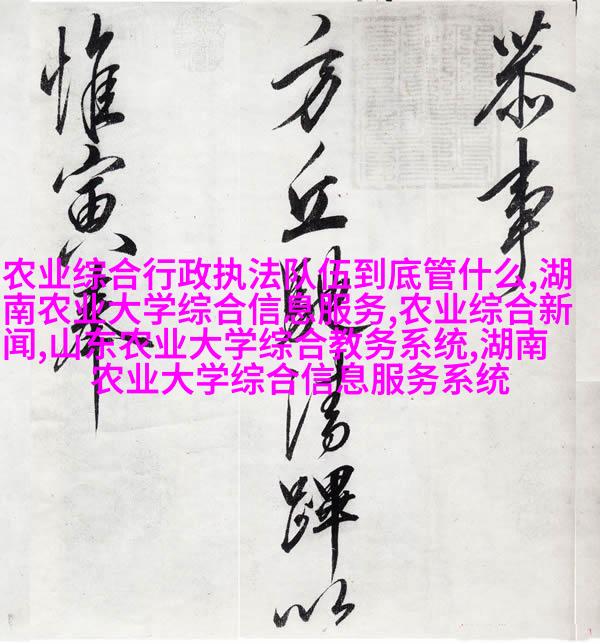 恭事
方丘清蹕以
惟寅奉
农业综合行政执法队伍到底管什么,湖
南农业大学综合信息服务,农业综合新
闻,山东农业大学综合教务系统,湖南
农业大学综合信息服务系统